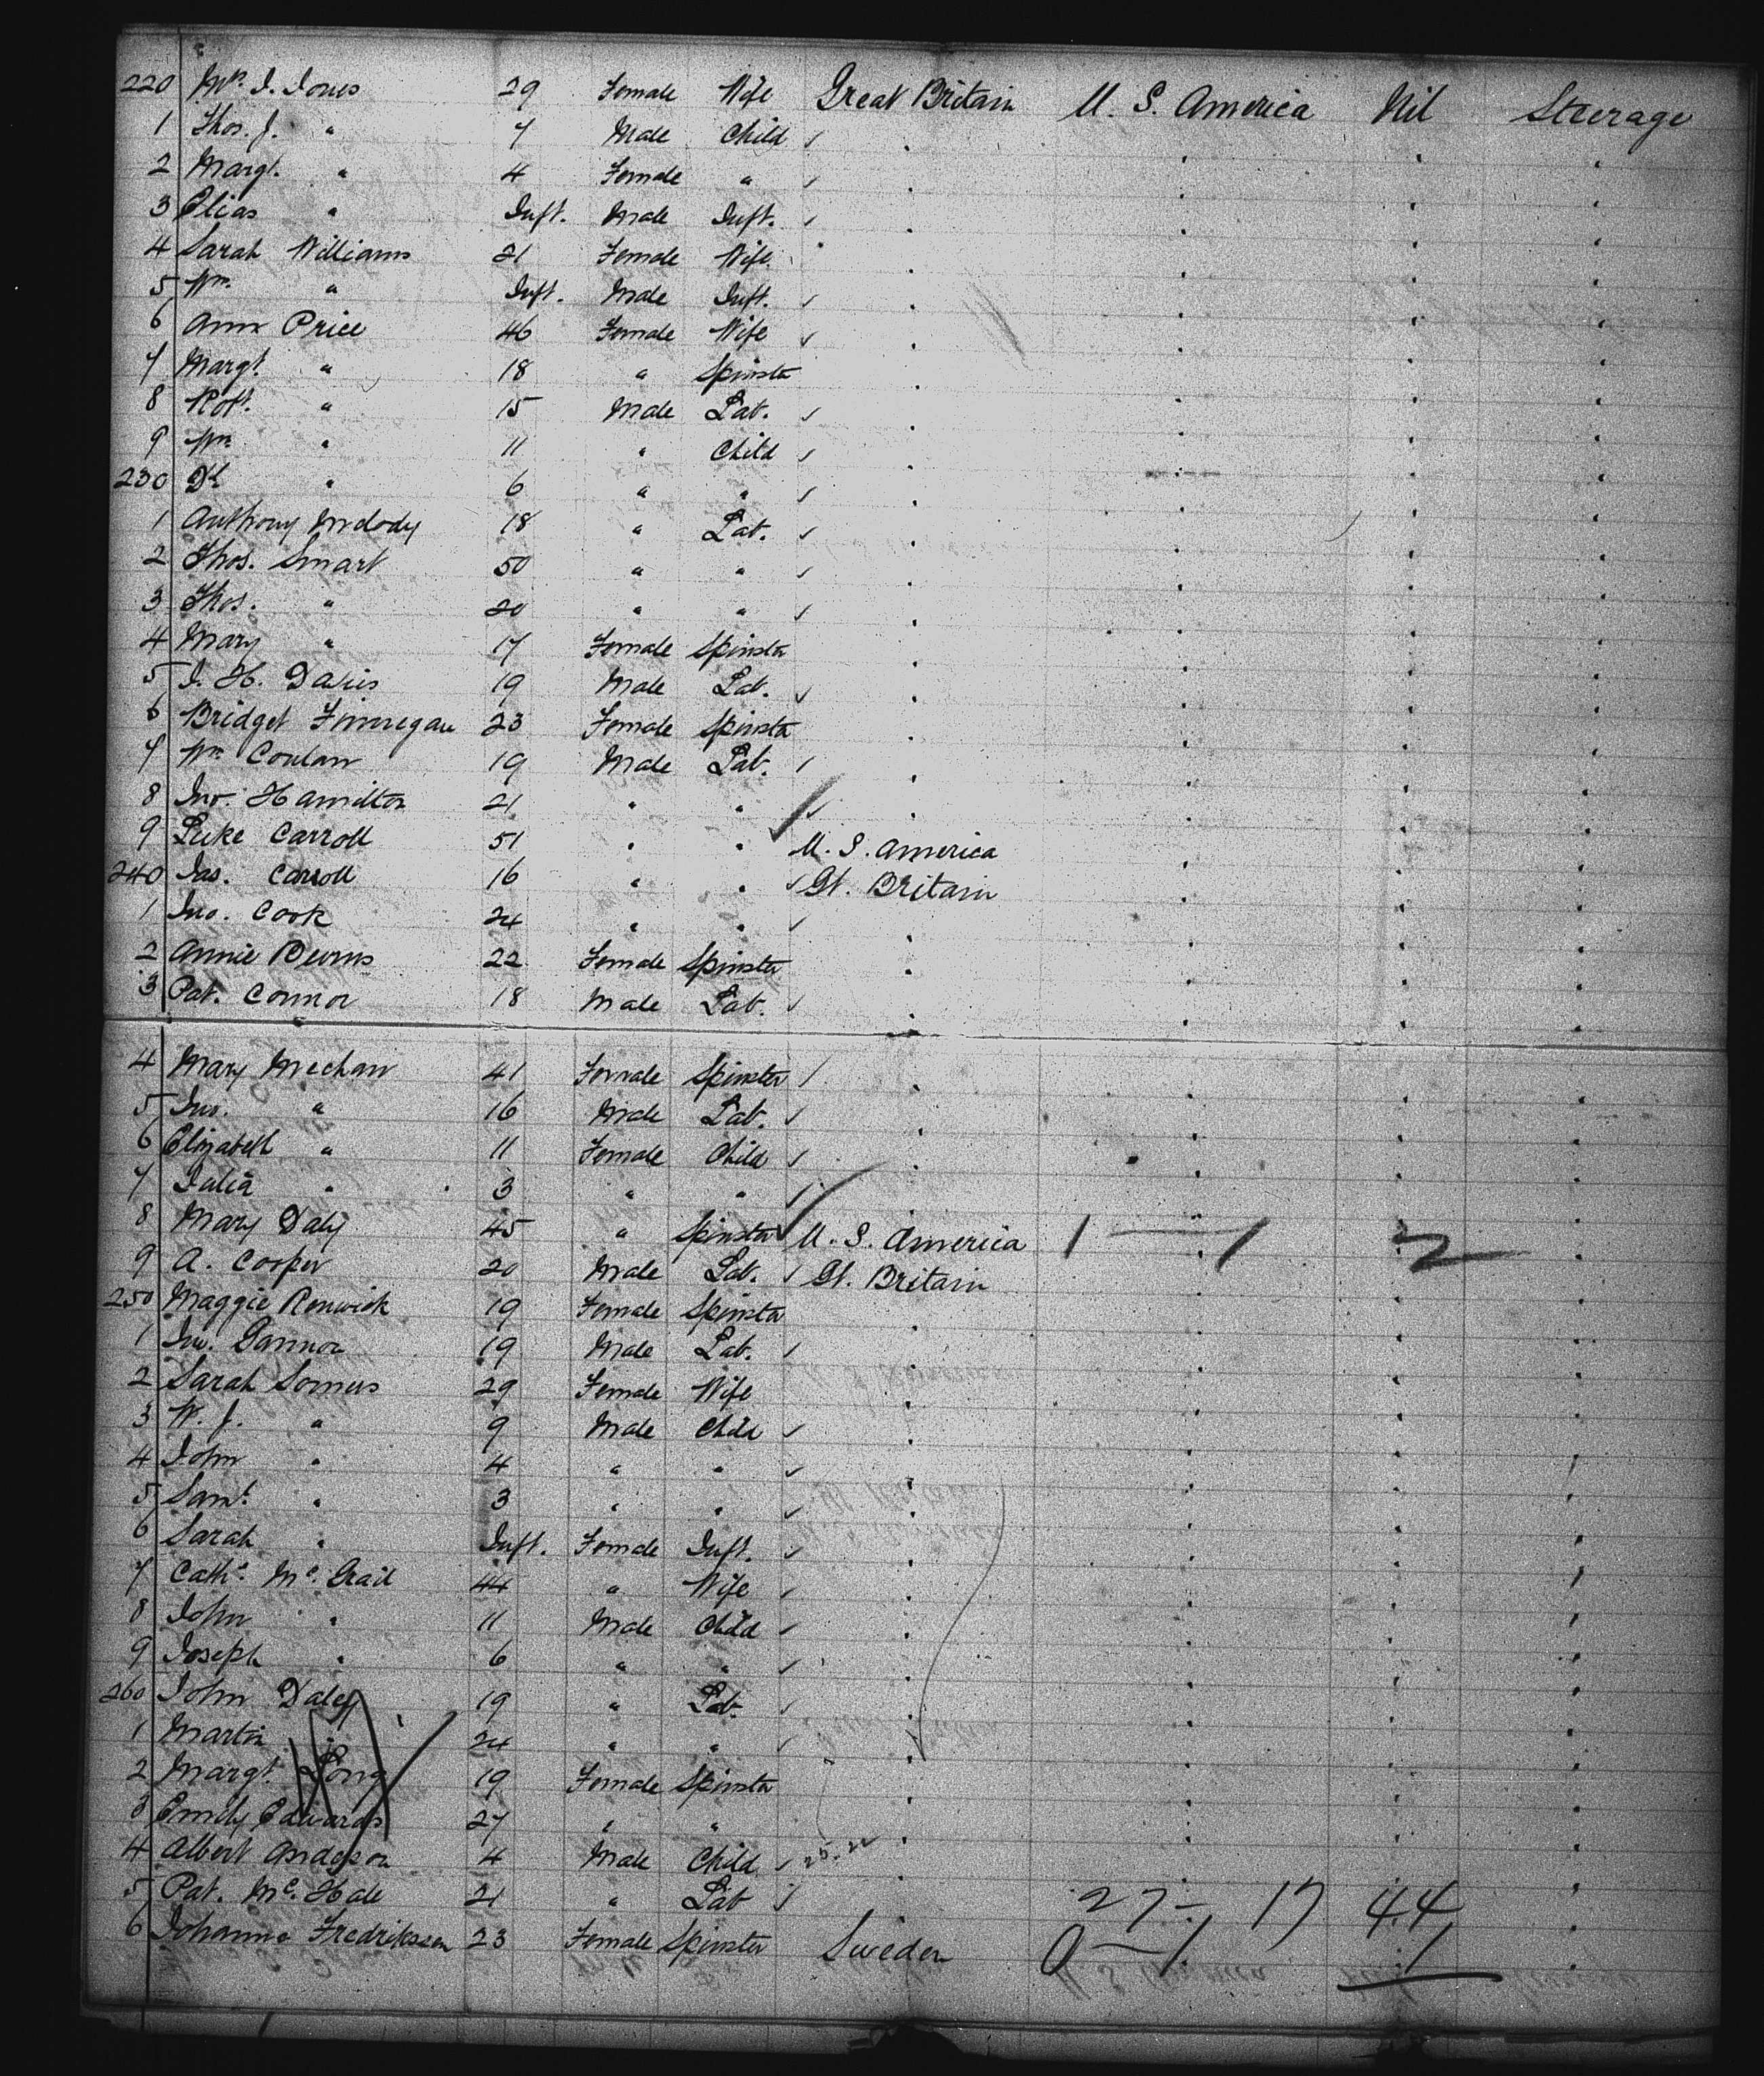 220 Mrs. J. Jones 29 Female Wife Great Britain U. S. America Nil Steerage
1 Thos. J. " 7 Male Child
2 Margt. " 4 Female "
3 Elias " Inft. Male Inft.
4 Sarah Williams 21 Female Wife
5 Wm. " Inft. Male Inft.
6 Ann Price 46 Female Wife
7 Margt. " 18 " Spinster
8 Robt. " 15 Male Lab.
9 Wm. " 11 " Child
230 Dd. " 6 " "
1 Anthony Melody 18 " Lab.
2 Thos. Smart 50 " "
3 Thos. " 20 " "
4 Mary " 17 Female Spinster
5 J. H. Davies 19 Male Lab.
6 Bridget Finnegan 23 Female Spinster
7 Wm. Conlan 19 Male Lab.
8 Jno. Hamilton 21 " "
9 Luke Carroll 51 " " U. S. America
240 Jas. Carroll 16 " " Gt. Britain
1 Jno. Cook 24 " "
2 Annie 22 Female Spinster
3 Pat. Connor 18 Male Lab.
4 Mary Mechan 41 Female Spinster
5 Jno. " 16 Male Lab.
6 Elizabeth " 11 Female Child
7 Julia " 3 " "
8 Mary Daly 45 " Spinster U. S. America 1 — 1 2
9 A. Cooper 20 Male Lab. Gt. Britain
250 Maggie Renwick 19 Female Spinster
1 Jno. Gannon 19 Male Lab.
2 Sarah Somers 29 Female Wife
3 W. J. " 9 Male Child
4 John " 4 " "
5 Saml. " 3 " "
6 Sarah " Inft. Female Inft.
7 Cathe. Mc. Grail 44 " Wife
8 John " 11 Male Child
9 Joseph " 6 " "
260 John Daley 19 " Lab.
1 Martin " 24 " "
2 Margt. Long 19 Female Spinster
3 Emily Edwards 27 " "
4 Albert Anderson 4 Male Child 25.22
5 Pat. Mc. Hale 21 " Lab 27 - 17 44
6 Johanna Fredriksson 23 Female Spinster Sweden 0 — 1 1